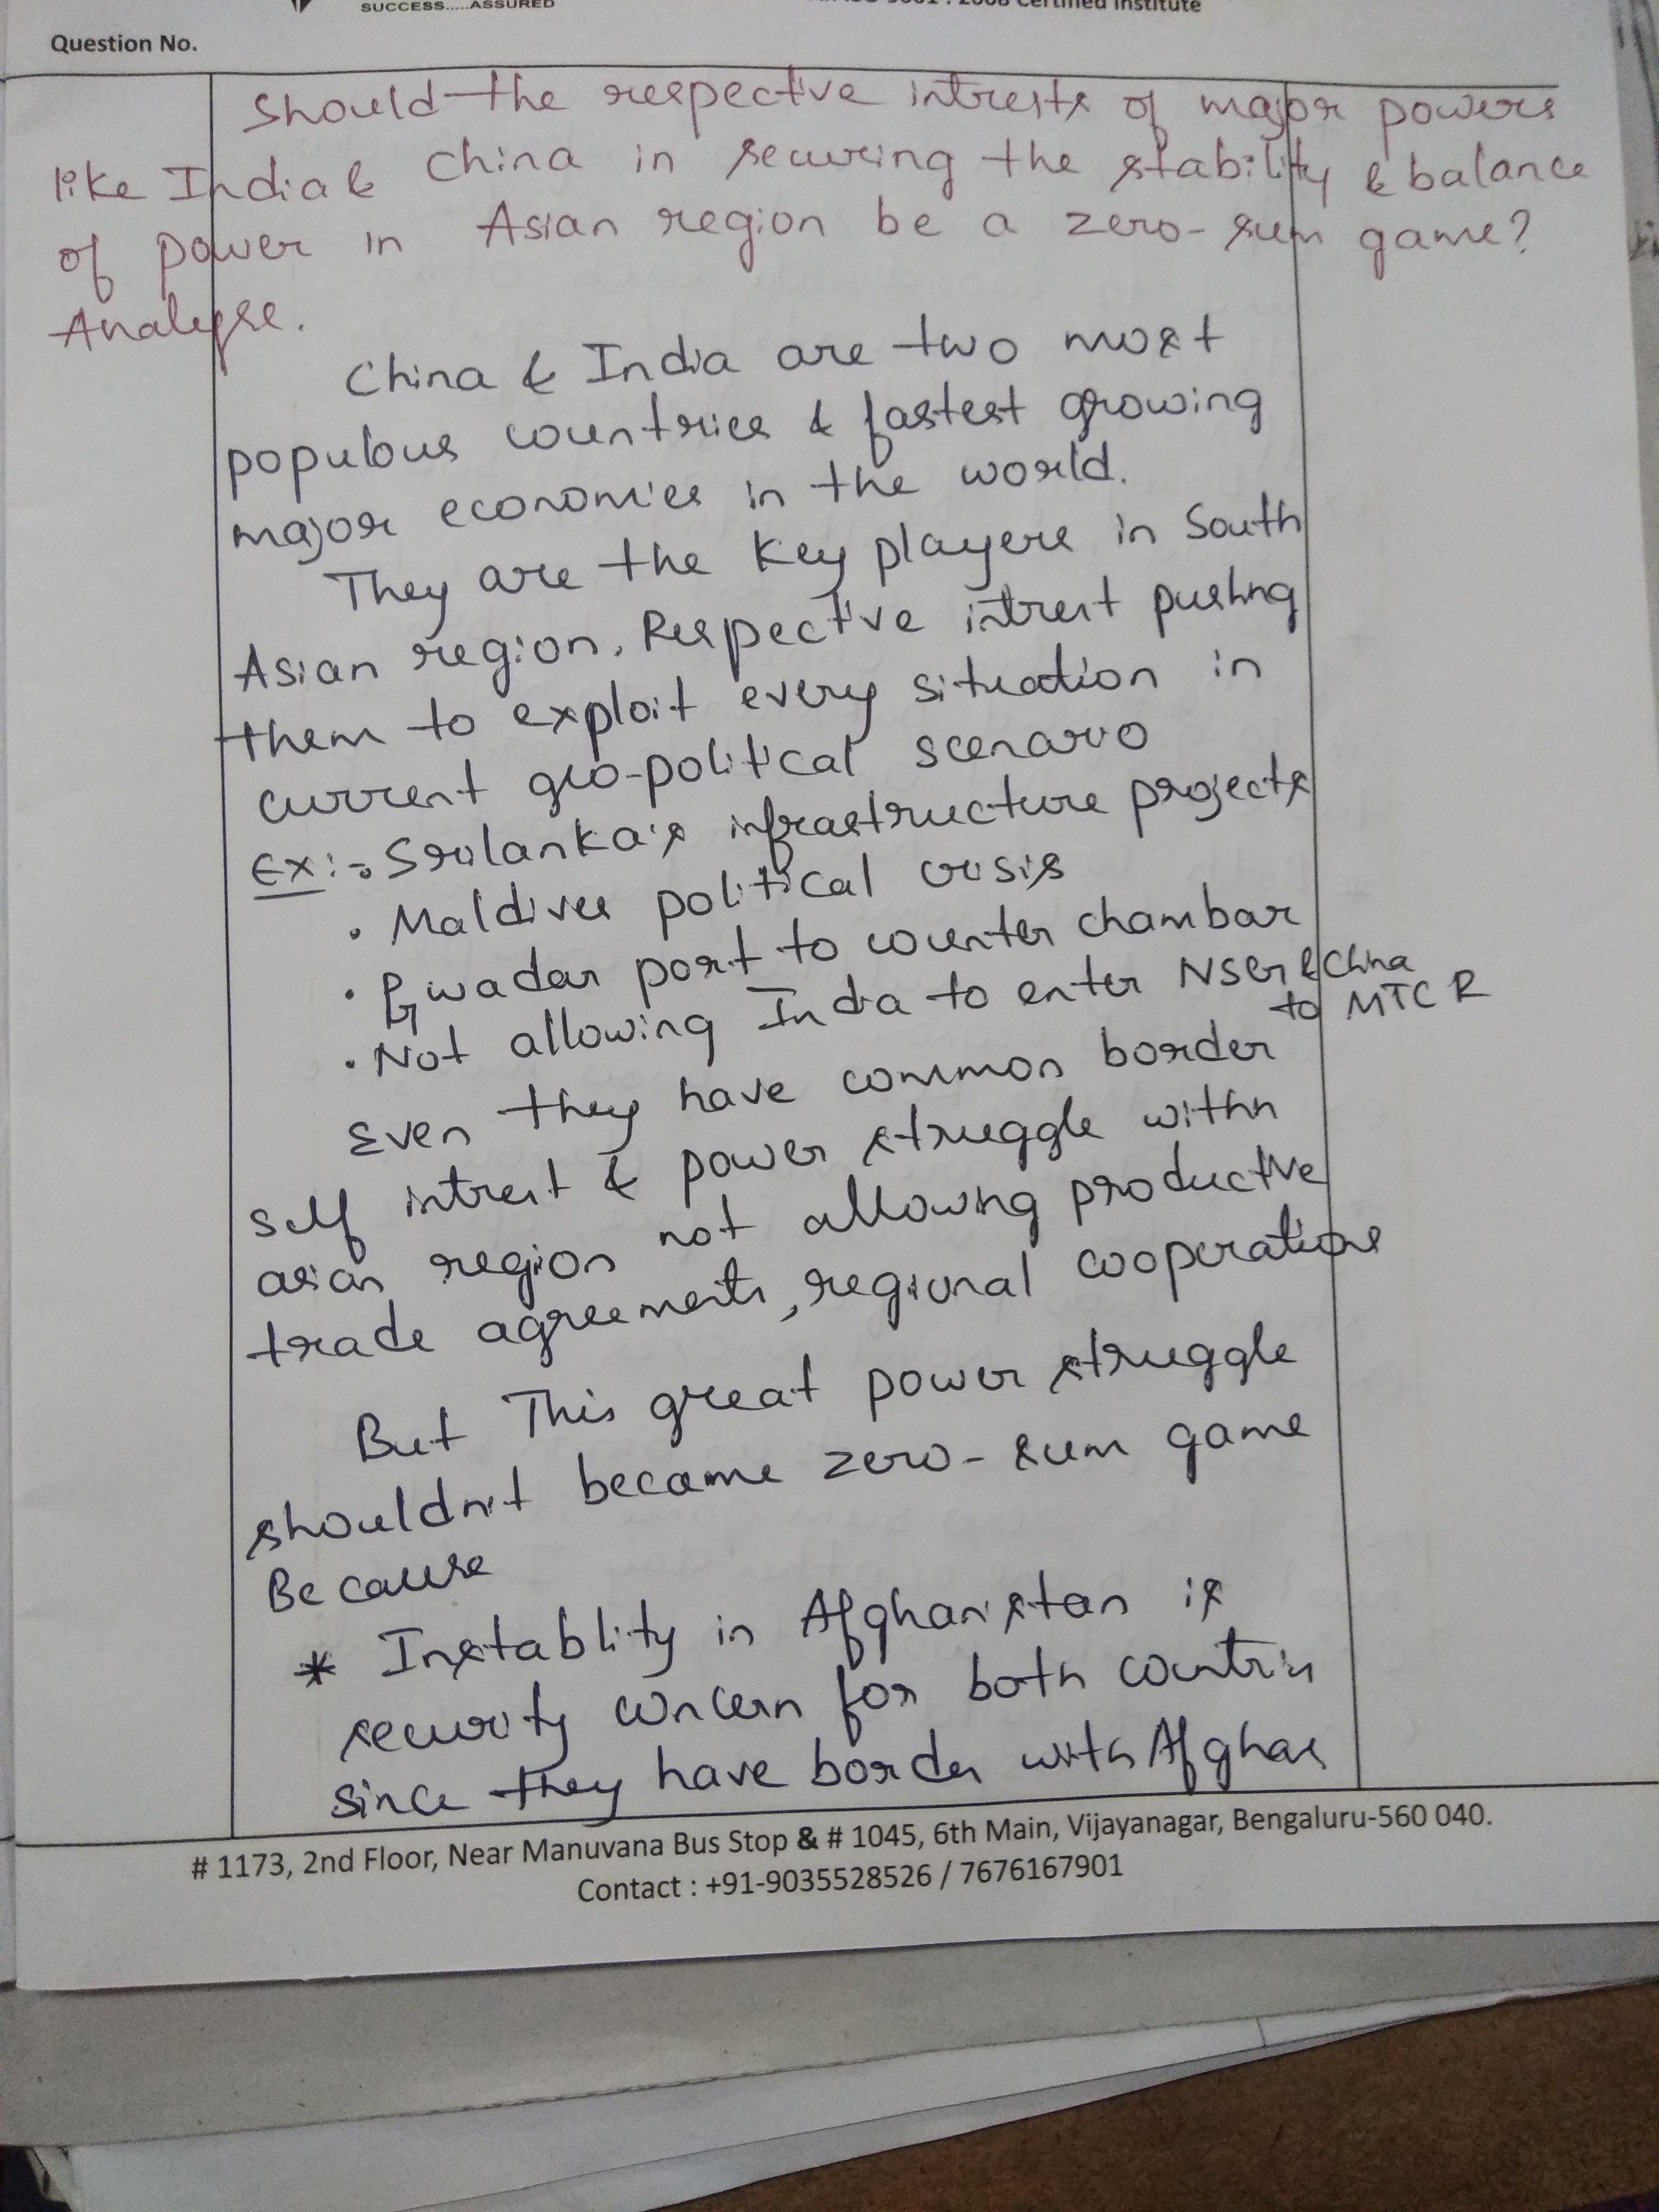 SUCCESS.....ASSURED
9001 : 2008 Certified Institute
Question No.
Should the respective intrests of major powers
like India & China in securing the stability & balance
of power in Asian region be a zero-sum game?
Analyse.
China & India are two most
populous countries & fastest growing
major economies in the world.
They are the key players in South
Asian region. Respective intrest pushng
them to exploit every situation in
current geo-political scenario
Ex:- • Srilanka's infrastructure projects
• Maldives political crisis
• Gwadar port to counter chambar
• Not allowing India to enter NSG & China
to MTCR
Even they have common border
self intrest & power struggle withn
asian region not allowng productive
trade agreements, regional cooperations
But This great power struggle
shouldn't became zero-sum game
Because
* Instablity in Afghanistan is
security concern for both countries
since they have border with Afghan
# 1173, 2nd Floor, Near Manuvana Bus Stop & # 1045, 6th Main, Vijayanagar, Bengaluru-560 040.
Contact : +91-9035528526 / 7676167901